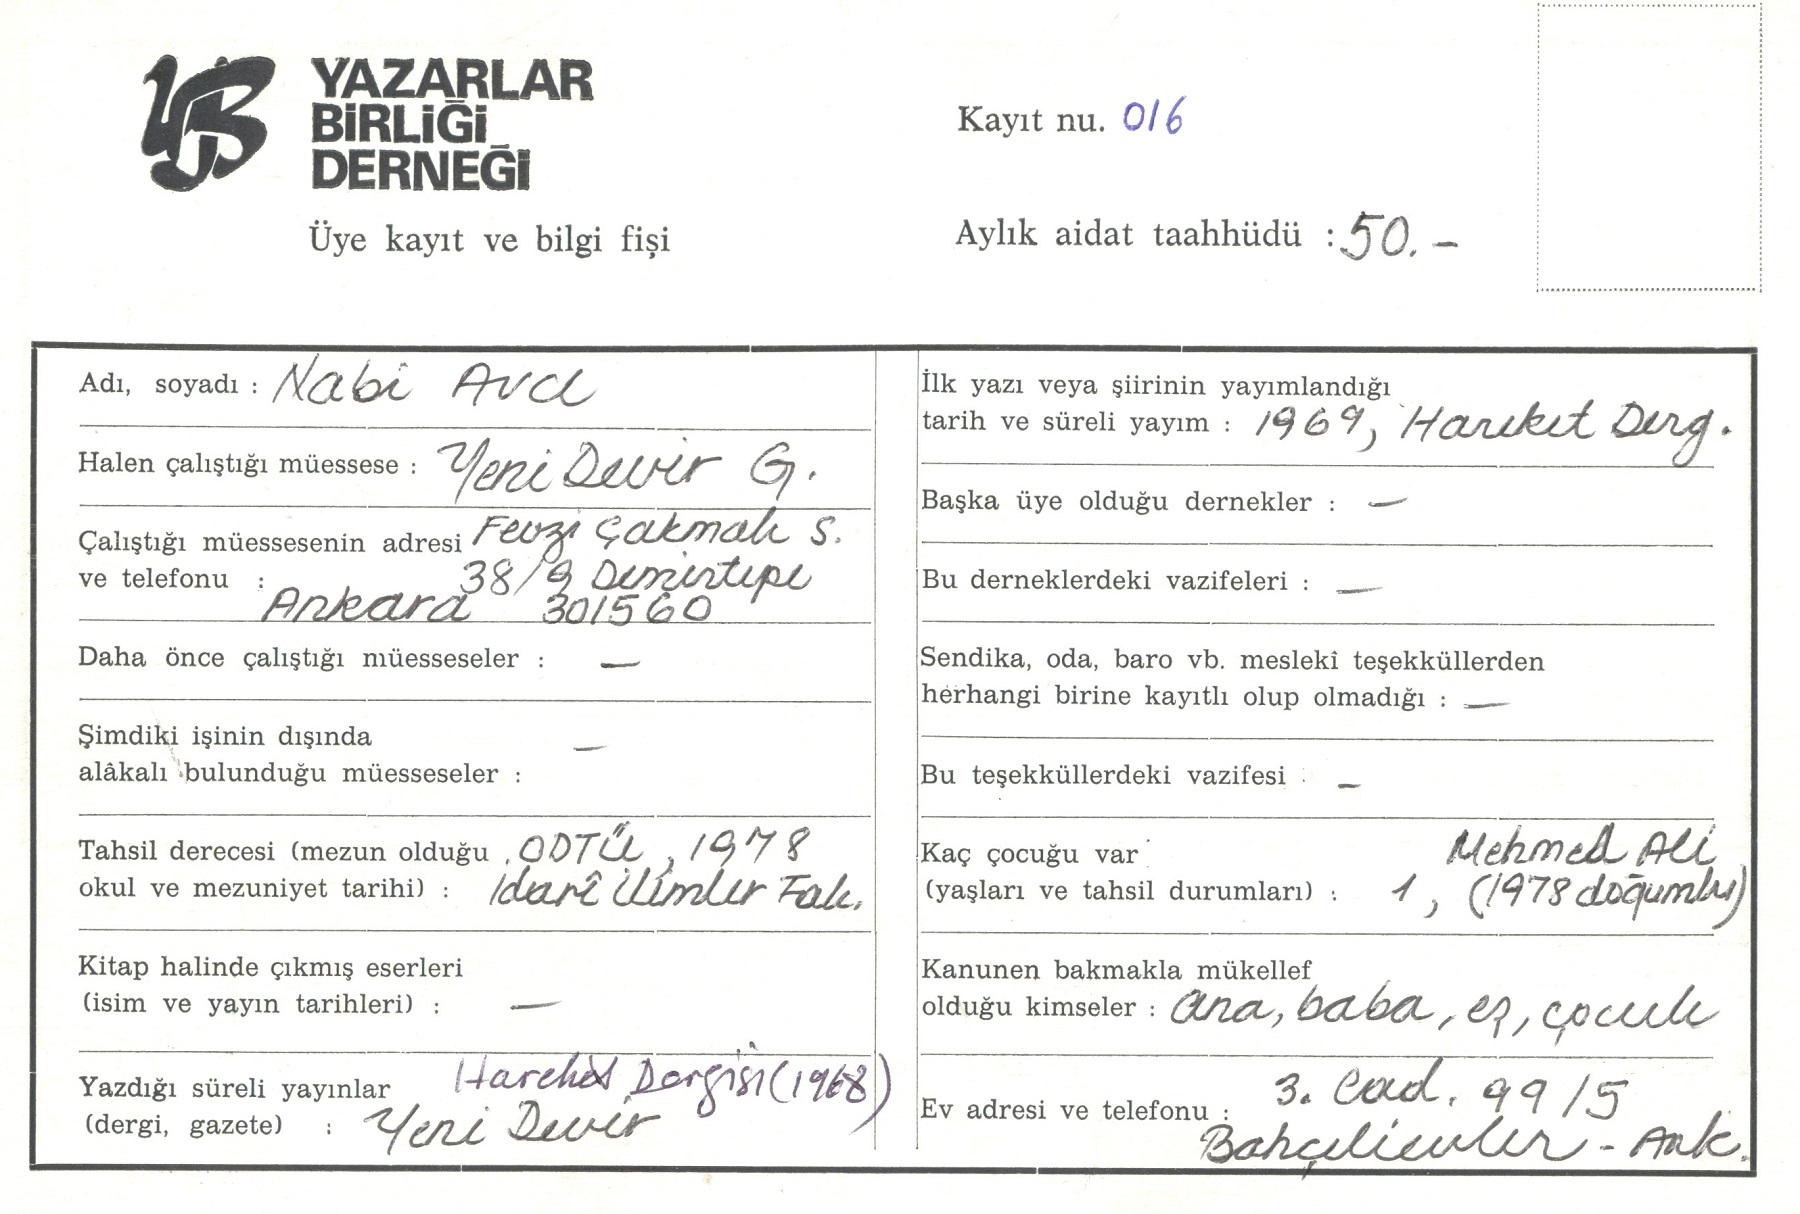 YAZARLAR
BİRLİĞİ
DERNEĞİ
Üye kayıt ve bilgi fişi
Kayıt nu. 016
Aylık aidat taahhüdü : 50.-
Adı, soyadı : Nabi Avcı
Halen çalıştığı müessese : Yeni Devir G.
Çalıştığı müessesenin adresi Fevzi Çakmak S.
ve telefonu : 38/9 Demirtepe
Ankara 301560
Daha önce çalıştığı müesseseler : —
Şimdiki işinin dışında —
alâkalı bulunduğu müesseseler :
Tahsil derecesi (mezun olduğu ODTÜ, 1978
okul ve mezuniyet tarihi) : İdarî İlimler Fak.
Kitap halinde çıkmış eserleri
(isim ve yayın tarihleri) : —
Yazdığı süreli yayınlar Hareket Dergisi (1968)
(dergi, gazete) : Yeni Devir
İlk yazı veya şiirinin yayımlandığı
tarih ve süreli yayım : 1969, Hareket Derg.
Başka üye olduğu dernekler : —
Bu derneklerdeki vazifeleri : —
Sendika, oda, baro vb. meslekî teşekküllerden
herhangi birine kayıtlı olup olmadığı : —
Bu teşekküllerdeki vazifesi : —
Kaç çocuğu var Mehmed Ali
(yaşları ve tahsil durumları) : 1, (1978 doğumlu)
Kanunen bakmakla mükellef
olduğu kimseler : ana, baba, eş, çocuk
3. Cad. 99/5
Ev adresi ve telefonu :
Bahçelievler - Ank.